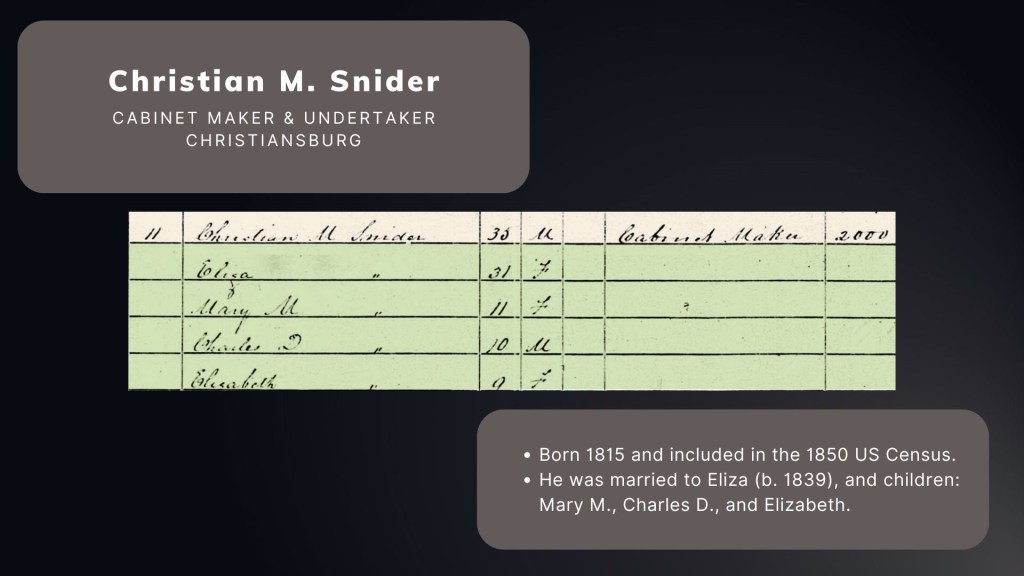 Christian M. Snider
CABINET MAKER & UNDERTAKER
CHRISTIANSBURG
11 Christian M Snider 35 M Cabinet Maker 2000
Eliza " 31 F
Mary M " 11 F
Charles D " 10 M
Elizabeth " 9 F
• Born 1815 and included in the 1850 US Census.
• He was married to Eliza (b. 1839), and children:
Mary M., Charles D., and Elizabeth.